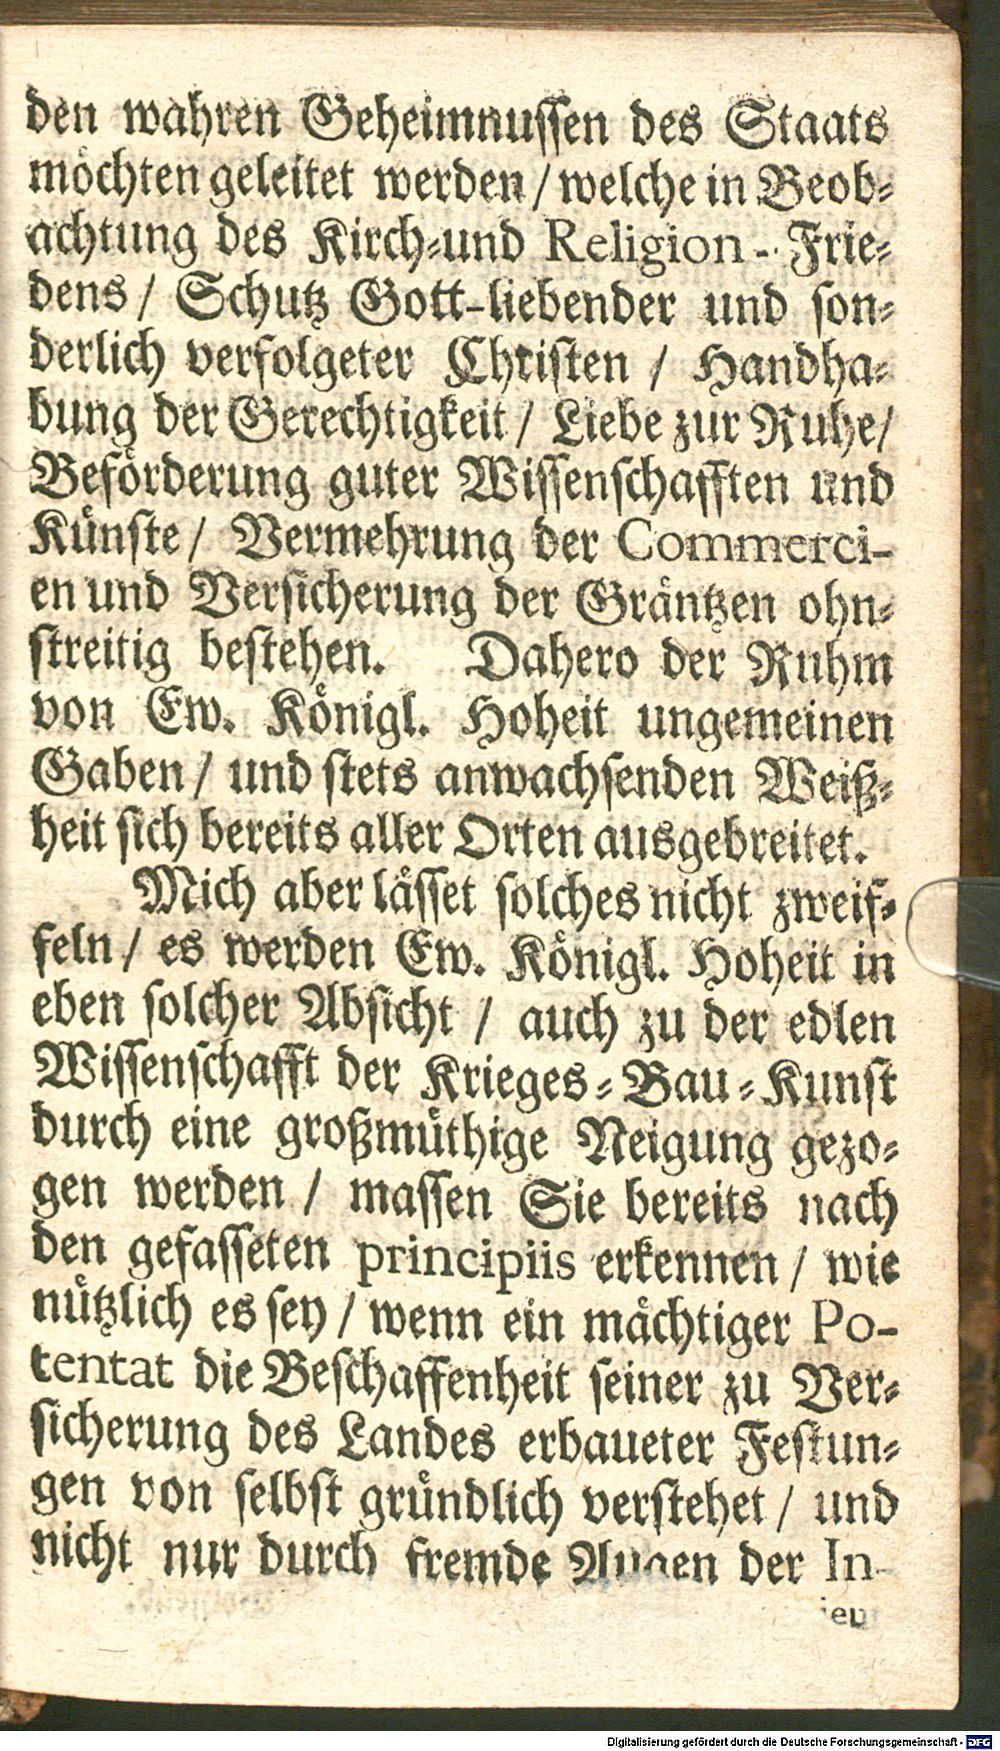 den wahren Geheimnussen des Staats
möchten geleitet werden / welche in Beob-
achtung des Kirch-und Religion-Frie-
dens / Schutz Gott-liebender und son-
derlich verfolgeter Christen / Handha-
bung der Gerechtigkeit / Liebe zur Ruhe /
Beförderung guter Wissenschafften und
Künste / Vermehrung der Commerci-
en und Versicherung der Gräntzen ohn-
streitig bestehen. Dahero der Ruhm
von Ew. Königl. Hoheit ungemeinen
Gaben / und stets anwachsenden Weiß-
heit sich bereits aller Orten ausgebreitet.
Mich aber lässet solches nicht zweif-
feln / es werden Ew. Königl. Hoheit in
eben solcher Absicht / auch zu der edlen
Wissenschafft der Krieges-Bau-Kunst
durch eine großmüthige Neigung gezo-
gen werden / massen Sie bereits nach
den gefasseten principiis erkennen / wie
nützlich es sey / wenn ein mächtiger Po-
tentat die Beschaffenheit seiner zu Ver-
sicherung des Landes erbaueter Festun-
gen von selbst gründlich verstehet / und
nicht nur durch fremde Augen der In-
Digitalisierung gefördert durch die Deutsche Forschungsgemeinschaft - DFG